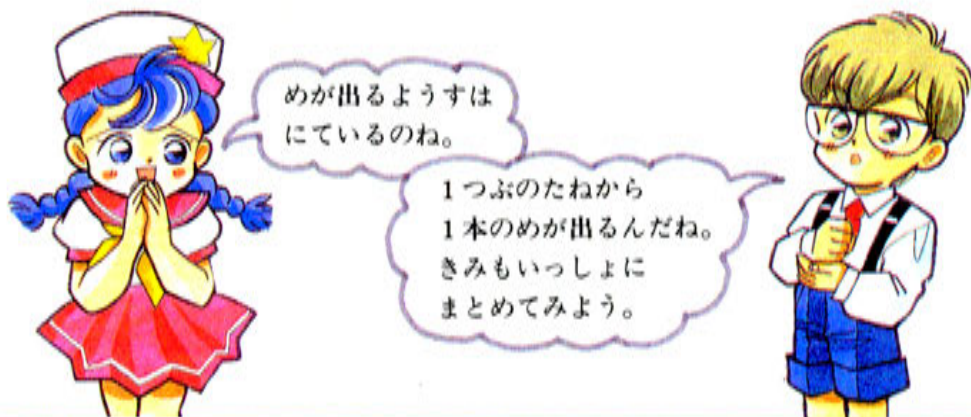 めが出るようすは
にているのね。
1つぶのたねから
1本のめが出るんだね。
きみもいっしょに
まとめてみよう。